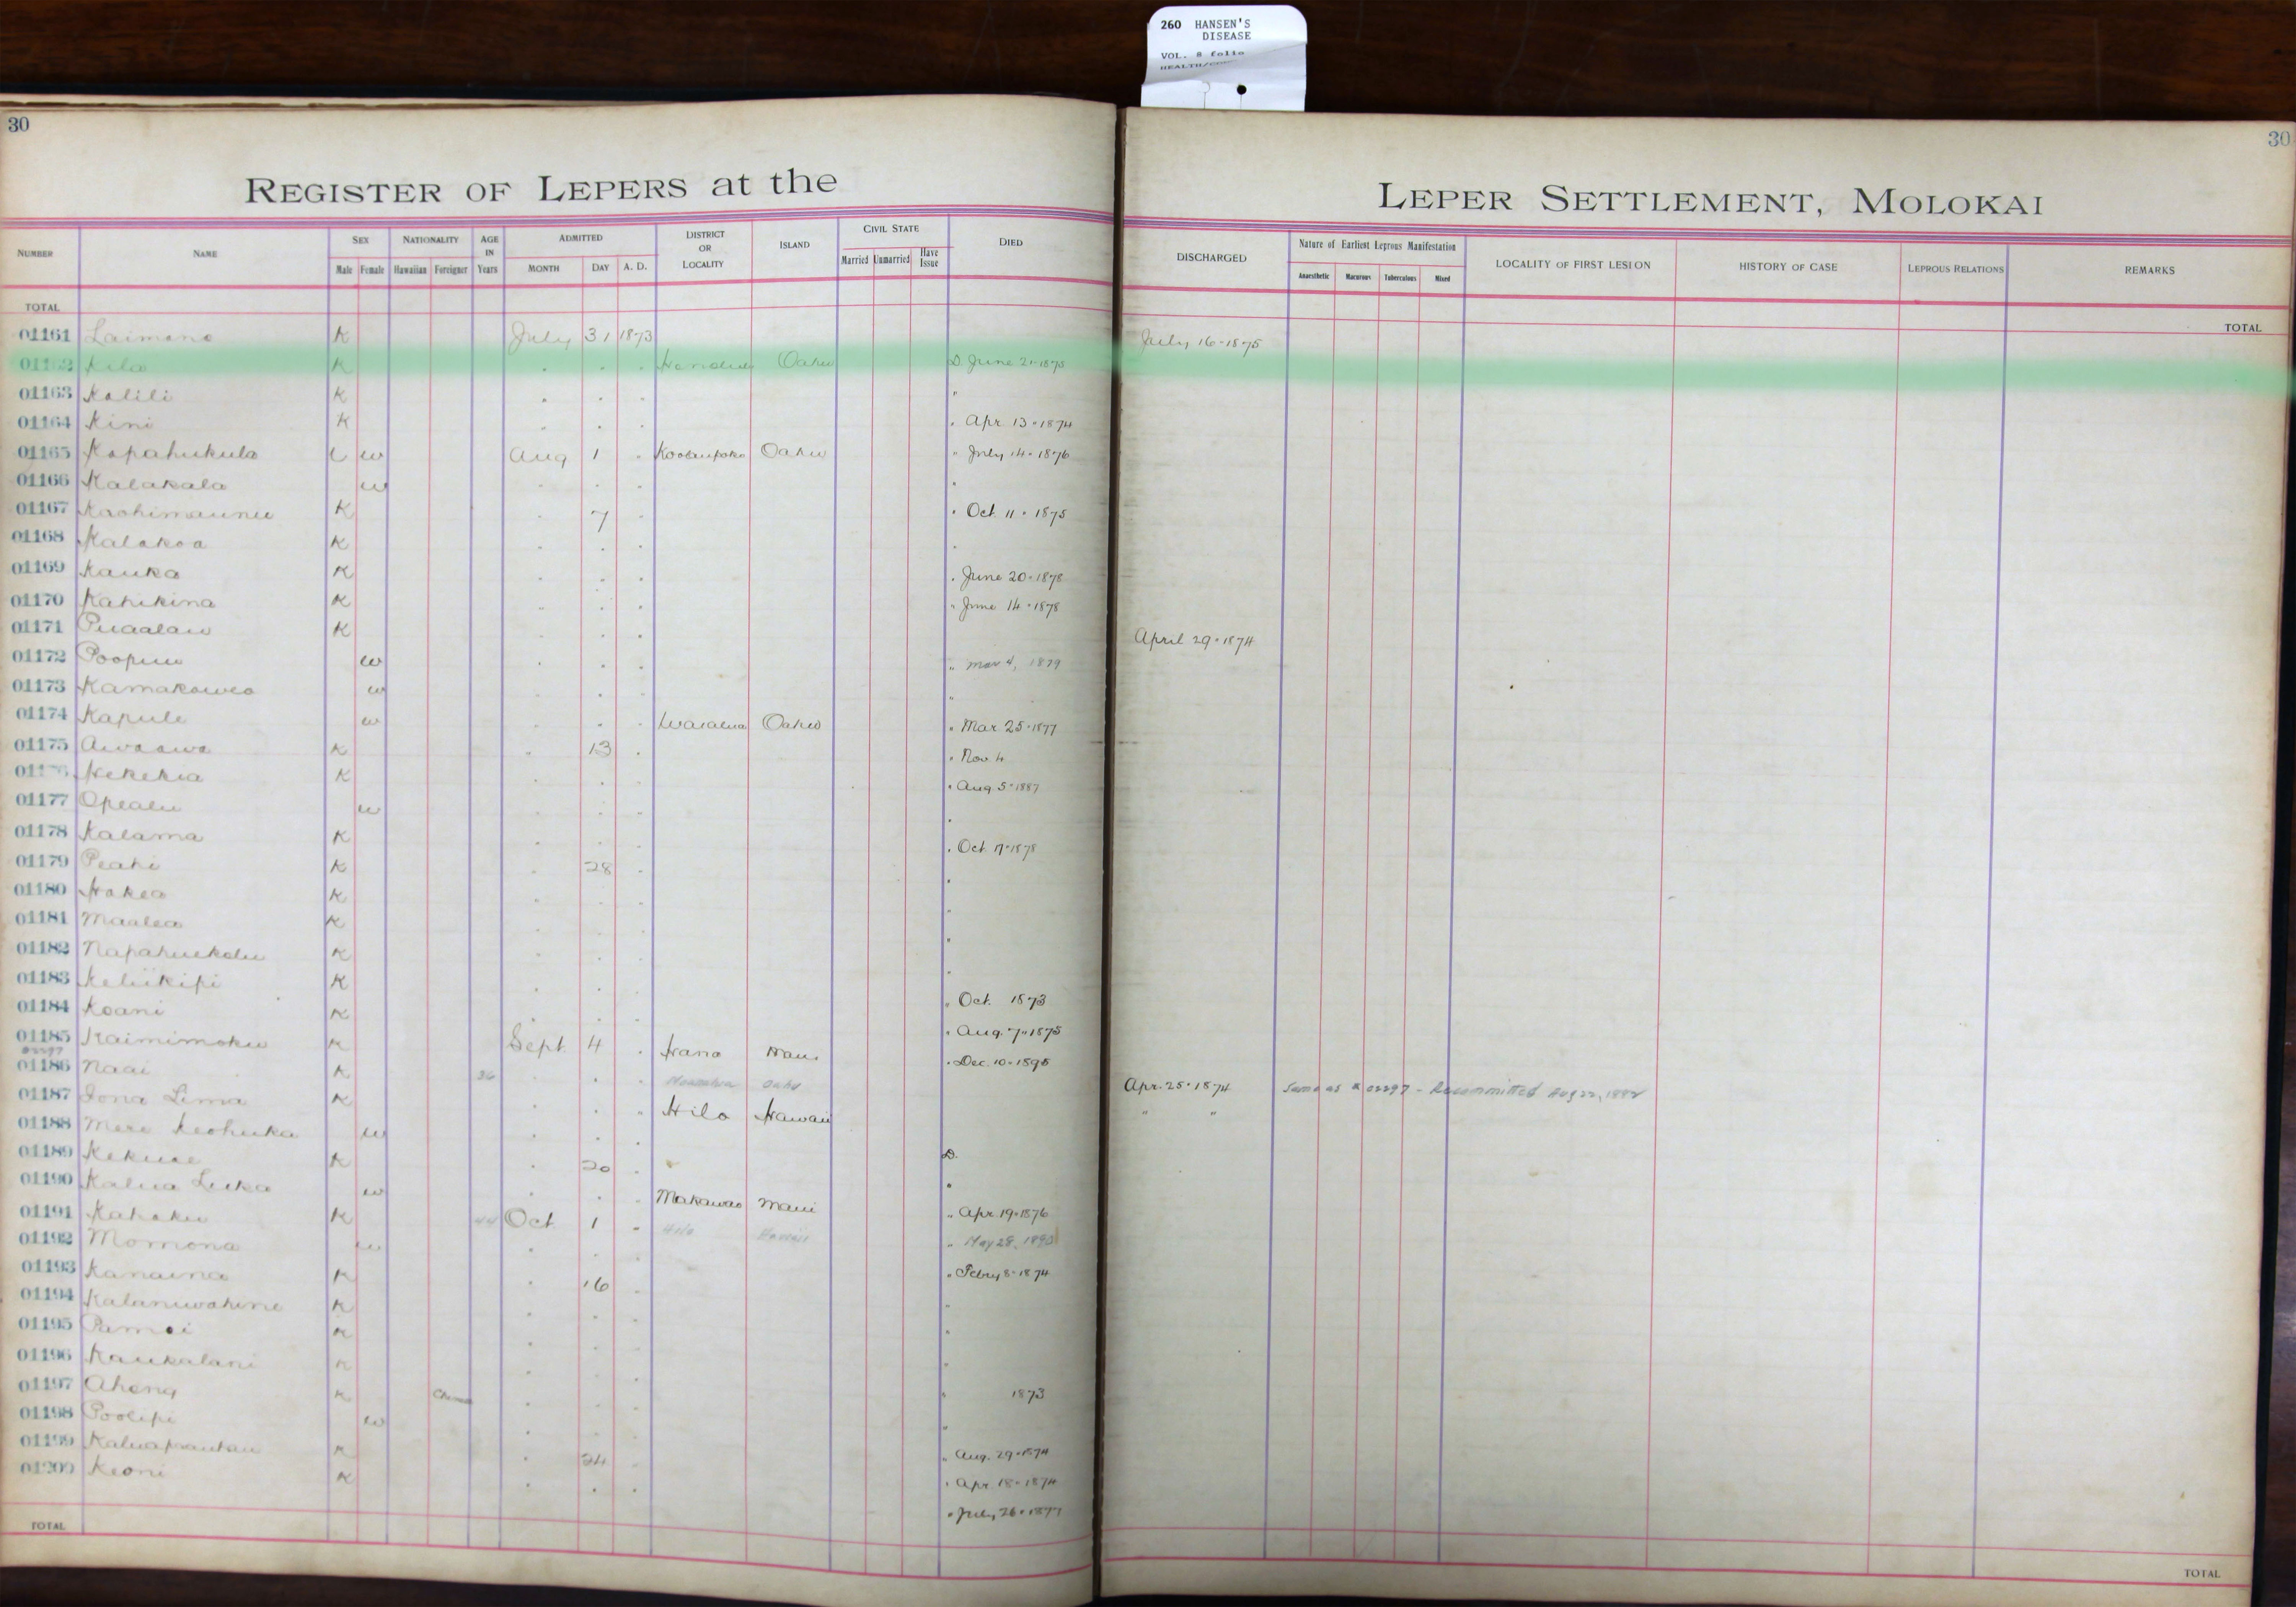 260 HANSEN'S
DISEASE
VOL. 8 folio
30
30
REGISTER OF LEPERS at the
LEPER SETTLEMENT, MOLOKAI
NUMBER NAME SEX Male Female NATIONALITY Hawaiian Foreigner AGE IN Years ADMITTED MONTH DAY A. D. DISTRICT OR LOCALITY ISLAND CIVIL STATE Married Unmarried Have Issue DIED
DISCHARGED Nature of Earliest Leprous Manifestation Anaesthetic Macurous Tuberculous Mixed LOCALITY OF FIRST LESION HISTORY OF CASE LEPROUS RELATIONS REMARKS
TOTAL
TOTAL
01161 Laimana K July 31 1873 July 16-1875
01162 Kila K . . . Honolulu Oahu D June 21-1875
01163 Kalili K . . . "
01164 Kini K . . . . Apr. 13-1874
01165 Kapahukula w Aug 1 . Koolaupoko Oahu " July 14-1876
01166 Kalakala w . . . "
01167 Kaohimaunu K . 7 . . Oct. 11-1875
01168 Kalakoa K . . . .
01169 Kauka K . . . . June 20-1878
01170 Kahikina K . . . " June 14-1878
01171 Puaalau K . . . April 29-1874
01172 Poopuu w . . . " Mar 4, 1879
01173 Kamakawea w . . . "
01174 Kapule w . . . Waialua Oahu " Mar. 25-1877
01175 Awaawa K . 13 . . Nov. 4
Kekekia K . . . . Aug. 5-1887
01177 Opealu w . . . .
01178 Kalama K . . . . Oct. 17-1878
01179 Peahi K . 28 . .
01180 Hakea K . . . .
01181 Maalea K . . . .
01182 Napahuekolu K . . . .
01183 Keliikipi K . . . " Oct. 1873
01184 Koani K . . . . Aug. 7-1875
01185 Kaimimoku K Sept. 4 . Hana Maui . Dec. 10-1895
01186 Naai K 36 . . . Oahu Apr. 25-1874 Same as # 02297 - Recommitted Aug 22, 1882
01187 Iona Lima K . . " Hilo Hawaii " "
01188 Mere Keohuka w . . .
01189 Kekuae K . 20 . D.
01190 Kalua Luka w . . . Makawao Maui "
01191 Kahaku K 44 Oct 1 . Hilo Hawaii " Apr. 19-1876
01192 Momona w . . . " May 28, 1890
01193 Kanaina K . 16 . " Febry 8-1874
01194 Kalaniwahine K . . . .
01195 K . . . .
01196 Kaukalani K . . . .
01197 Ahong K . . . 1873
01198 Poolipi w . . . "
01199 K . 24 . " Aug. 29-1874
01200 Keoni K . . . . Apr. 18-1874
. July 26-1877
TOTAL
TOTAL